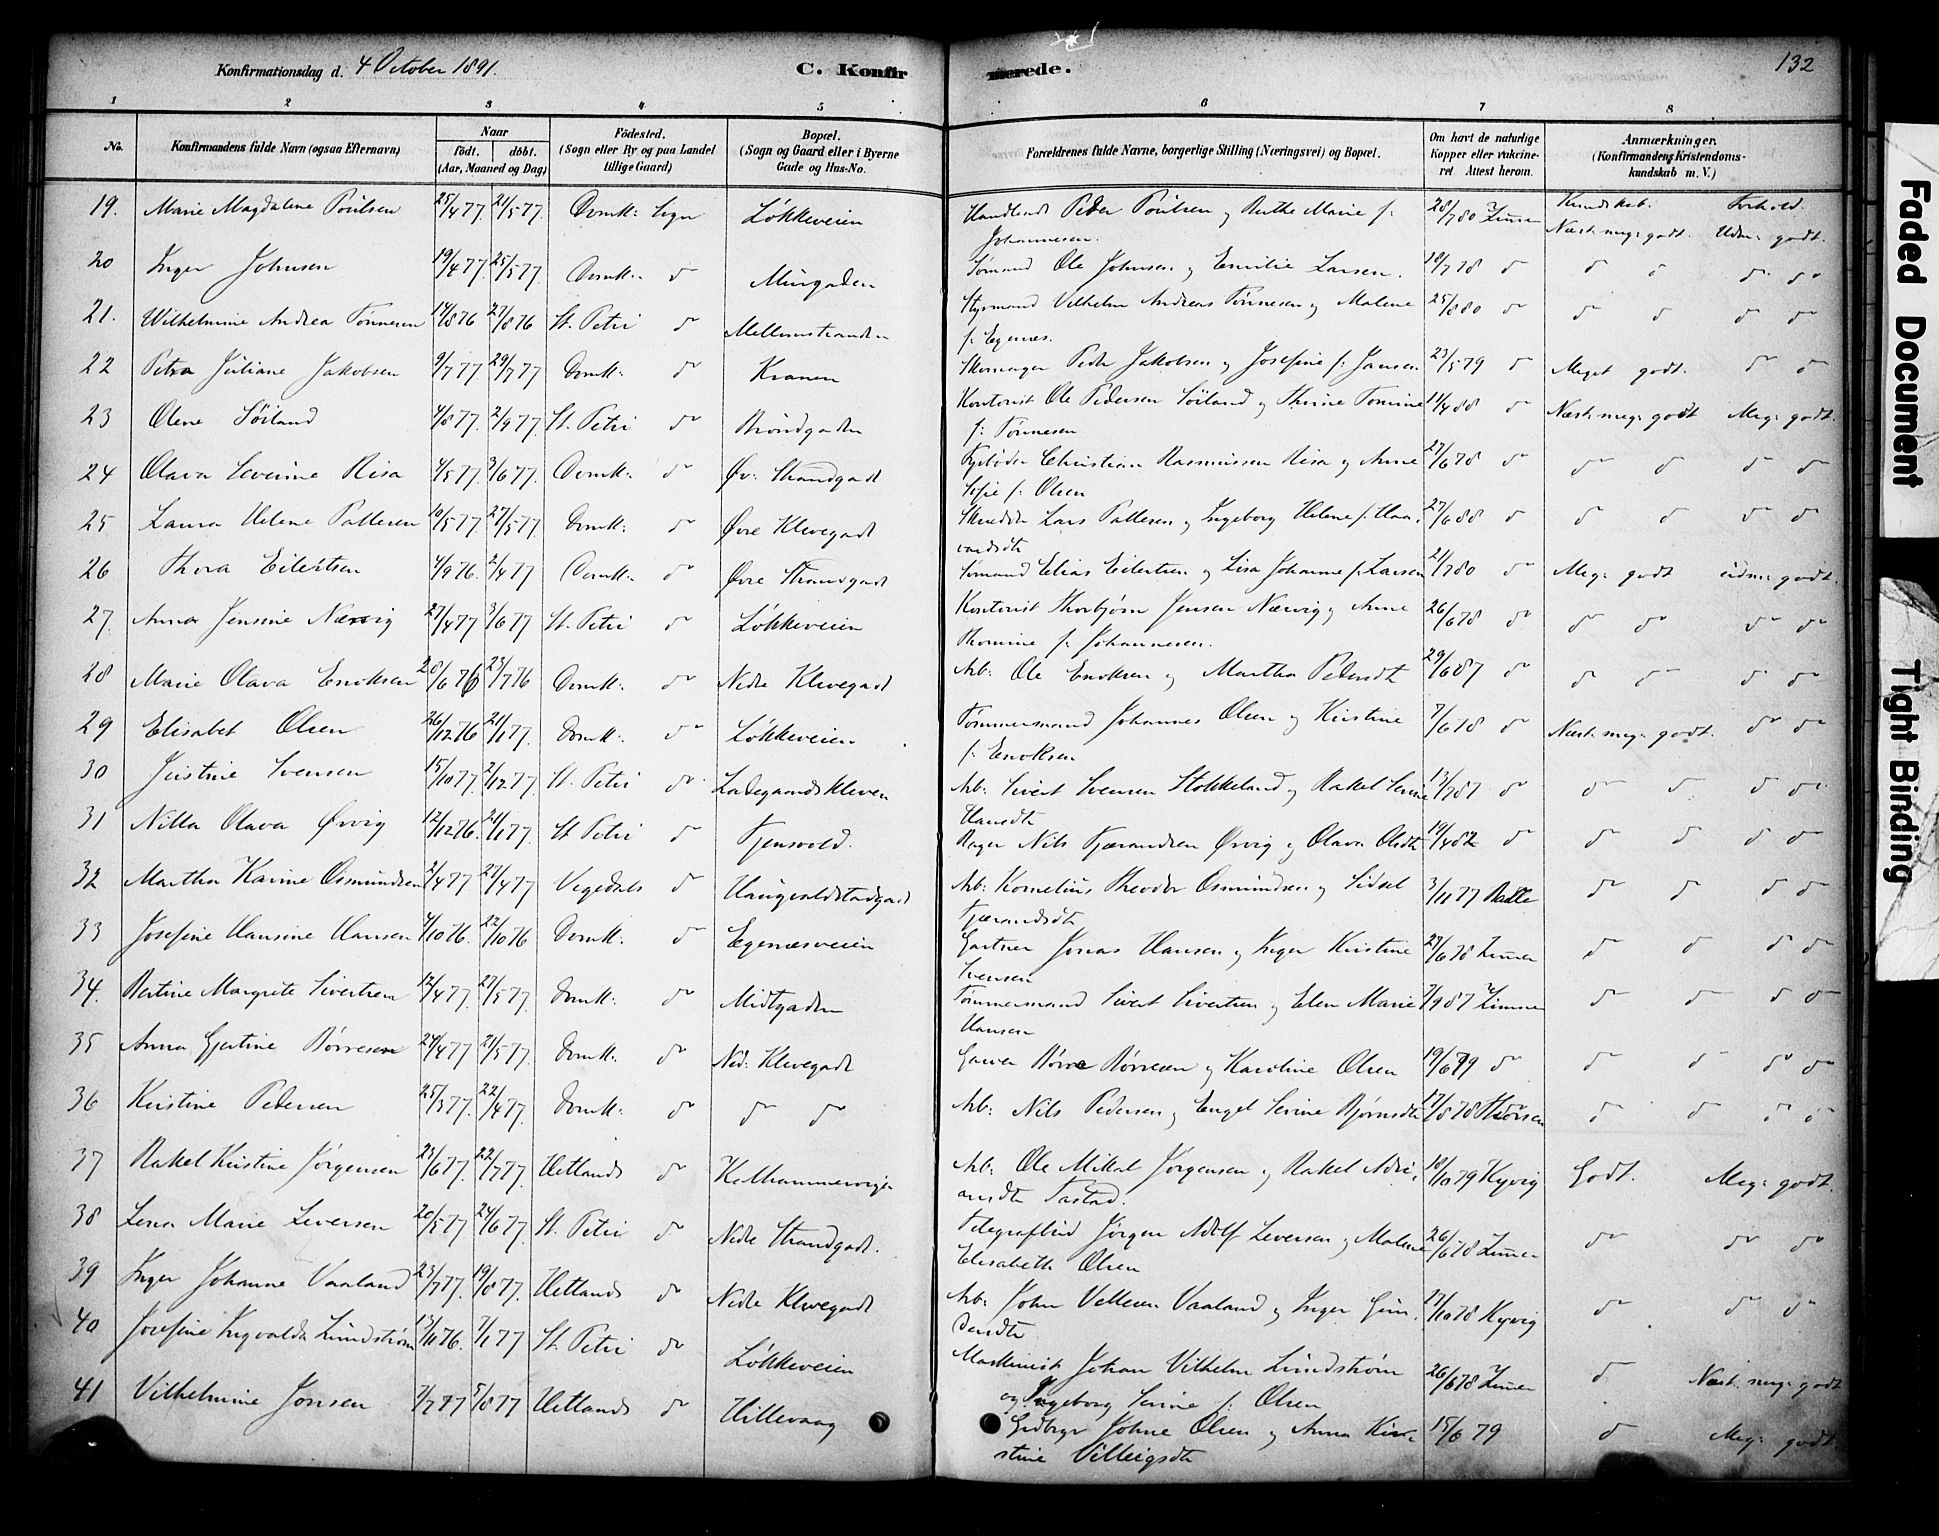 Konfirmationsdag d. 4 October 1891. C. Konfirmerede. 132
1 2 3 4 5 6 7 8
No. Konfirmandens fulde Navn (ogsaa Efternavn) Naar födt. döbt. (Aar, Maaned og Dag) Födested. (Sogn eller By og paa Landet tillige Gaard) Bopæl. (Sogn og Gaard eller i Byerne Gade og Hus-No. Forældrenes fulde Navne, borgerlige Stilling (Næringsvei) og Bopæl. Om havt de naturlige Kopper eller vakcineret Attest herom. Anmærkninger. (Konfirmandens Kristendomskundskab m. V.)
Kundskab. Forhold.
19. Marie Magdalene Poulsen 25/4 77 21/5 77. Domk: Sogn Løkkeveien Handlende Peder Poulsen og Berthe Marie f: 28/7 80 Zimmer Næst meg: godt. Udm: godt.
Johannesen.
20 Inger Johnsen 19/4 77. 25/5 77. Domk: do Murgaden Sømand Ole Johnsen og Emilie Larsen. 18/7 78 do do do do do
21. Wilhelmine Andrea Tønnesen 14/8 76 27/8 76 St. Petri do Mellemstranden Styrmand Vilhelm Andreas Tønnesen og Malene 25/8 80 do do do do do
f. Egenæs.
22 Petra Juliane Jakobsen 9/7 77 29/7 77 Domk: do Kranen Skomager Peder Jakobsen og Josefine f: Jansen 23/5 79 do Meget godt. do do
23 Olene Søiland 4/8 77. 2/9 77. St. Petri do Brøndgaden Kontorist Ole Pedersen Søiland og Thrine Tomine 11/4 88 do Næst meg: godt Meg: godt.
f: Tønnesen
24 Olava Severine Risa 4/5 77. 3/6 77. Domk: do Øv: Strandgade Christian Rasmussen Risa og Anne 27/6 78 do do do do do
Sofie f: Olsen
25 Laura Helene Pallesen 10/5 77. 27/5 77. Domk: do Øvre Klevegade Lars Pallesen og Ingeborg Helene f. Haa- 27/6 88 do do do do do
vardsdtr
26 Thora Eilertsen 4/9 76. 2/4 77 Domk: do Øvre Strandgade Sømand Elias Eilertsen og Lisa Johanne f. Larsen 21/7 80 do Meg: godt udm: godt.
27. Anna Jensine Nærvig 27/4 77 3/6 77 St. Petri do Løkkeveien Kontorist Thorbjørn Jensen Nærvig og Anne 26/6 78 do do do do do
Thomine f. Johannesen.
28 Marie Olava Enoksen 28/6 76 23/7 76 Domk: do Nedre Klevegade Arb: Ole Enoksen og Martha Pedersdtr 29/6 87 do do do do do
29 Elisabet Olsen 26/12 76 21/1 77. Domk: do Løkkeveien Tømmermand Johannes Olsen og Kirstine 7/6 78 do Næst meg: godt. do do
f. Enoksen
30 Justine Svensen 15/10 77. 2/12 77. St. Petri do Ladegaardskleven Arb: Sivert Svensen Stokkeland og Rakel Serine 13/7 87 do do do do do
Hansdtr
31 Nilla Olava Ørvig 12/12 76. 21/1 77. St. Petri do Tjensvold. Bager Nils Tjerandsen Ørvig og Olava Olsdtr 19/4 82 do do do do do
32 Martha Karine Osmundsen 2/4 77 27/4 77 Vegedals do Haugvaldstadgade Arb: Kornelius Theodor Osmundsen og Sidsel 3/11 77 do do do do
Tjerandsdtr
33 Josefine Hansine Hansen 4/10 76. 22/10 76 Domk: do Egenæsveien Gartner Jonas Hansen og Inger Kirstine 27/6 78 Zimmer do do do do
Svensen
34. Bertine Margrete Sivertsen 12/4 77. 27/5 77. Domk: do Midtgaden Tømmermand Sivert Sivertsen og Elen Marie 7/9 87 Zimmer do do do do
Hansen
35 Anna Gjertine Børresen 24/4 77 21/5 77. Domk: do Ned: Klevegade Garver Børre Børresen og Karoline Olsen 19/6 79 do do do do do
36 Kristine Pedersen 25/3 77. 22/4 77. Domk: do do do Arb: Nils Pedersen og Engel Serine Bjørnsdtr 17/8 78 do do do do
37 Rakel Kirstine Jørgensen 23/6 77. 22/7 77. Hetlands do Kalhammervigen Arb: Ole Mikal Jørgensen og Rakel Adri- 18/10 79 Kyvig Godt. Meg: godt.
ansdtr Tastad.
38 Lena Marie Leversen 20/5 77. 24/6 77. St. Petri do Nedre Strandgade. Telegrafbud Jørgen Adolf Leversen og Malene 26/6 78 Zimmer do do do
Elisabeth Olsen
39 Inger Johanne Vaaland 23/7 77. 19/8 77. Hetlands do Nedre Klevegade Arb: John Vellesen Vaaland og Inger Gun- 17/10 78 Kyvig do do do
40 Josefine Ingvalda Lundstrøm 13/11 76. 7/1 77 St. Petri do Løkkeveien Maskinist Johan Vilhelm Lundstrøm 26/6 78 Zimmer do Næst meg: godt
og Ingeborg Serine f: Olsen
41 Vilhelmine Jonsen 7/7 77 5/8 77 Hetlands do Hillevaag Johne Olsen og Anna Kir- 15/6 79 do Meg: godt.
stine Villeigsdtr
Faded Document
Tight Binding